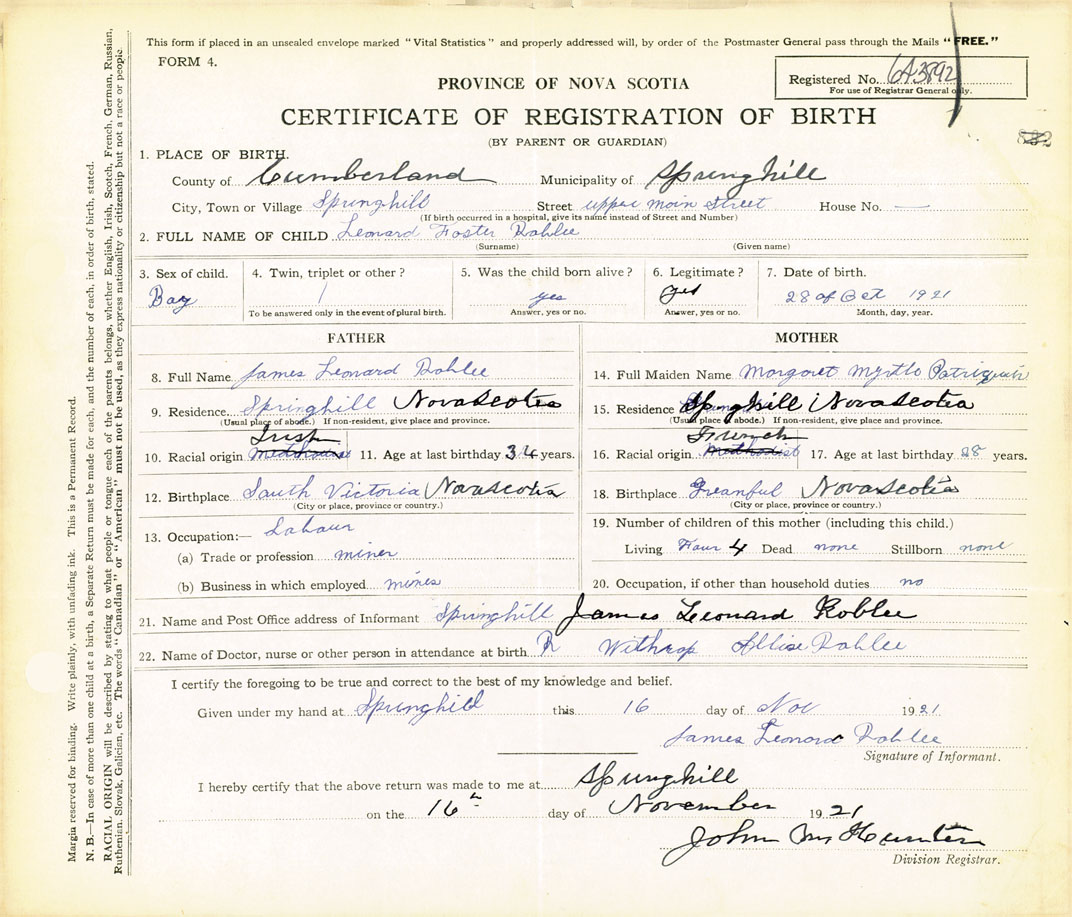 This form if placed in an unsealed envelope marked "Vital Statistics" and properly addressed will, by order of the Postmaster General pass through the Mails "FREE."
FORM 4.
Registered No.
For use of Registrar General only.
PROVINCE OF NOVA SCOTIA
CERTIFICATE OF REGISTRATION OF BIRTH
(BY PARENT OR GUARDIAN)
1. PLACE OF BIRTH.
County of Cumberland Municipality of Springhill
City, Town or Village Springhill Street upper main Street House No. —
(If birth occurred in a hospital, give its name instead of Street and Number)
2. FULL NAME OF CHILD Leonard Foster Roblee
(Surname) (Given name)
3. Sex of child. 4. Twin, triplet or other? 5. Was the child born alive? 6. Legitimate? 7. Date of birth.
Boy 1 yes yes 28 of Oct 1921
To be answered only in the event of plural birth. Answer, yes or no. Answer, yes or no. Month, day, year.
FATHER
8. Full Name James Leonard Roblee
9. Residence Springhill Nova Scotia
(Usual place of abode.) If non-resident, give place and province.
Irish
10. Racial origin 11. Age at last birthday 34 years.
12. Birthplace South Victoria Nova Scotia
(City or place, province or country.)
13. Occupation:— Labour
(a) Trade or profession miner
(b) Business in which employed mines
MOTHER
14. Full Maiden Name Margaret Myrtle
15. Residence Springhill Nova Scotia
(Usual place of abode.) If non-resident, give place and province.
French
16. Racial origin Methodist 17. Age at last birthday 28 years.
18. Birthplace Nova Scotia
(City or place, province or country.)
19. Number of children of this mother (including this child.)
Living Four 4 Dead none Stillborn none
20. Occupation, if other than household duties no
21. Name and Post Office address of Informant Springhill James Leonard Roblee
22. Name of Doctor, nurse or other person in attendance at birth Withrop Roblee
I certify the foregoing to be true and correct to the best of my knowledge and belief.
Given under my hand at Springhill this 16 day of Nov 1921
James Leonard Roblee
Signature of Informant.
I hereby certify that the above return was made to me at Springhill
on the 16th day of November 1921
John Mc Hunter
Division Registrar.
Margin reserved for binding. Write plainly, with unfading ink. This is a Permanent Record.
N. B.—In case of more than one child at a birth, a Separate Return must be made for each, and the number of each, in order of birth, stated.
RACIAL ORIGIN will be described by stating to what people or tongue each of the parents belongs, whether English, Irish, Scotch, French, German, Russian,
Ruthenian, Slovak, Galician, etc. The words "Canadian" or "American" must not be used, as they express nationality or citizenship but not a race or people.